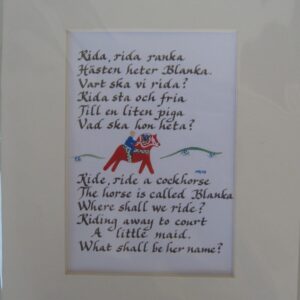 Rida, rida ranka
Hästen heter Blanka.
Vart ska vi rida?
Rida sta och fria
Till en liten piga
Vad ska hon heta?
Ride, ride a cockhorse
The horse is called Blanka
Where shall we ride?
Riding away to court
A little maid.
What shall be her name?